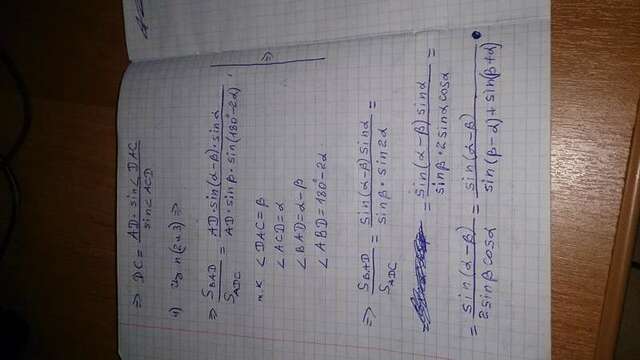 => DC = AD · sin∠DAC / sin∠ACD
4) Из п(2 и 3) =>
=> S_BAD / S_ADC = AD · sin(α-β) · sinα / AD · sinβ · sin(180°-2α) , =>
т.к ∠DAC = β
∠ACD = α
∠BAD = α-β
∠ABD = 180°-2α
=> S_BAD / S_ADC = sin(α-β) sinα / sinβ · sin2α =
= sin(α-β) sinα / sinβ · 2sinα cosα =
= sin(α-β) / 2sinβ cosα = sin(α-β) / sin(β-α) + sin(β+α) .